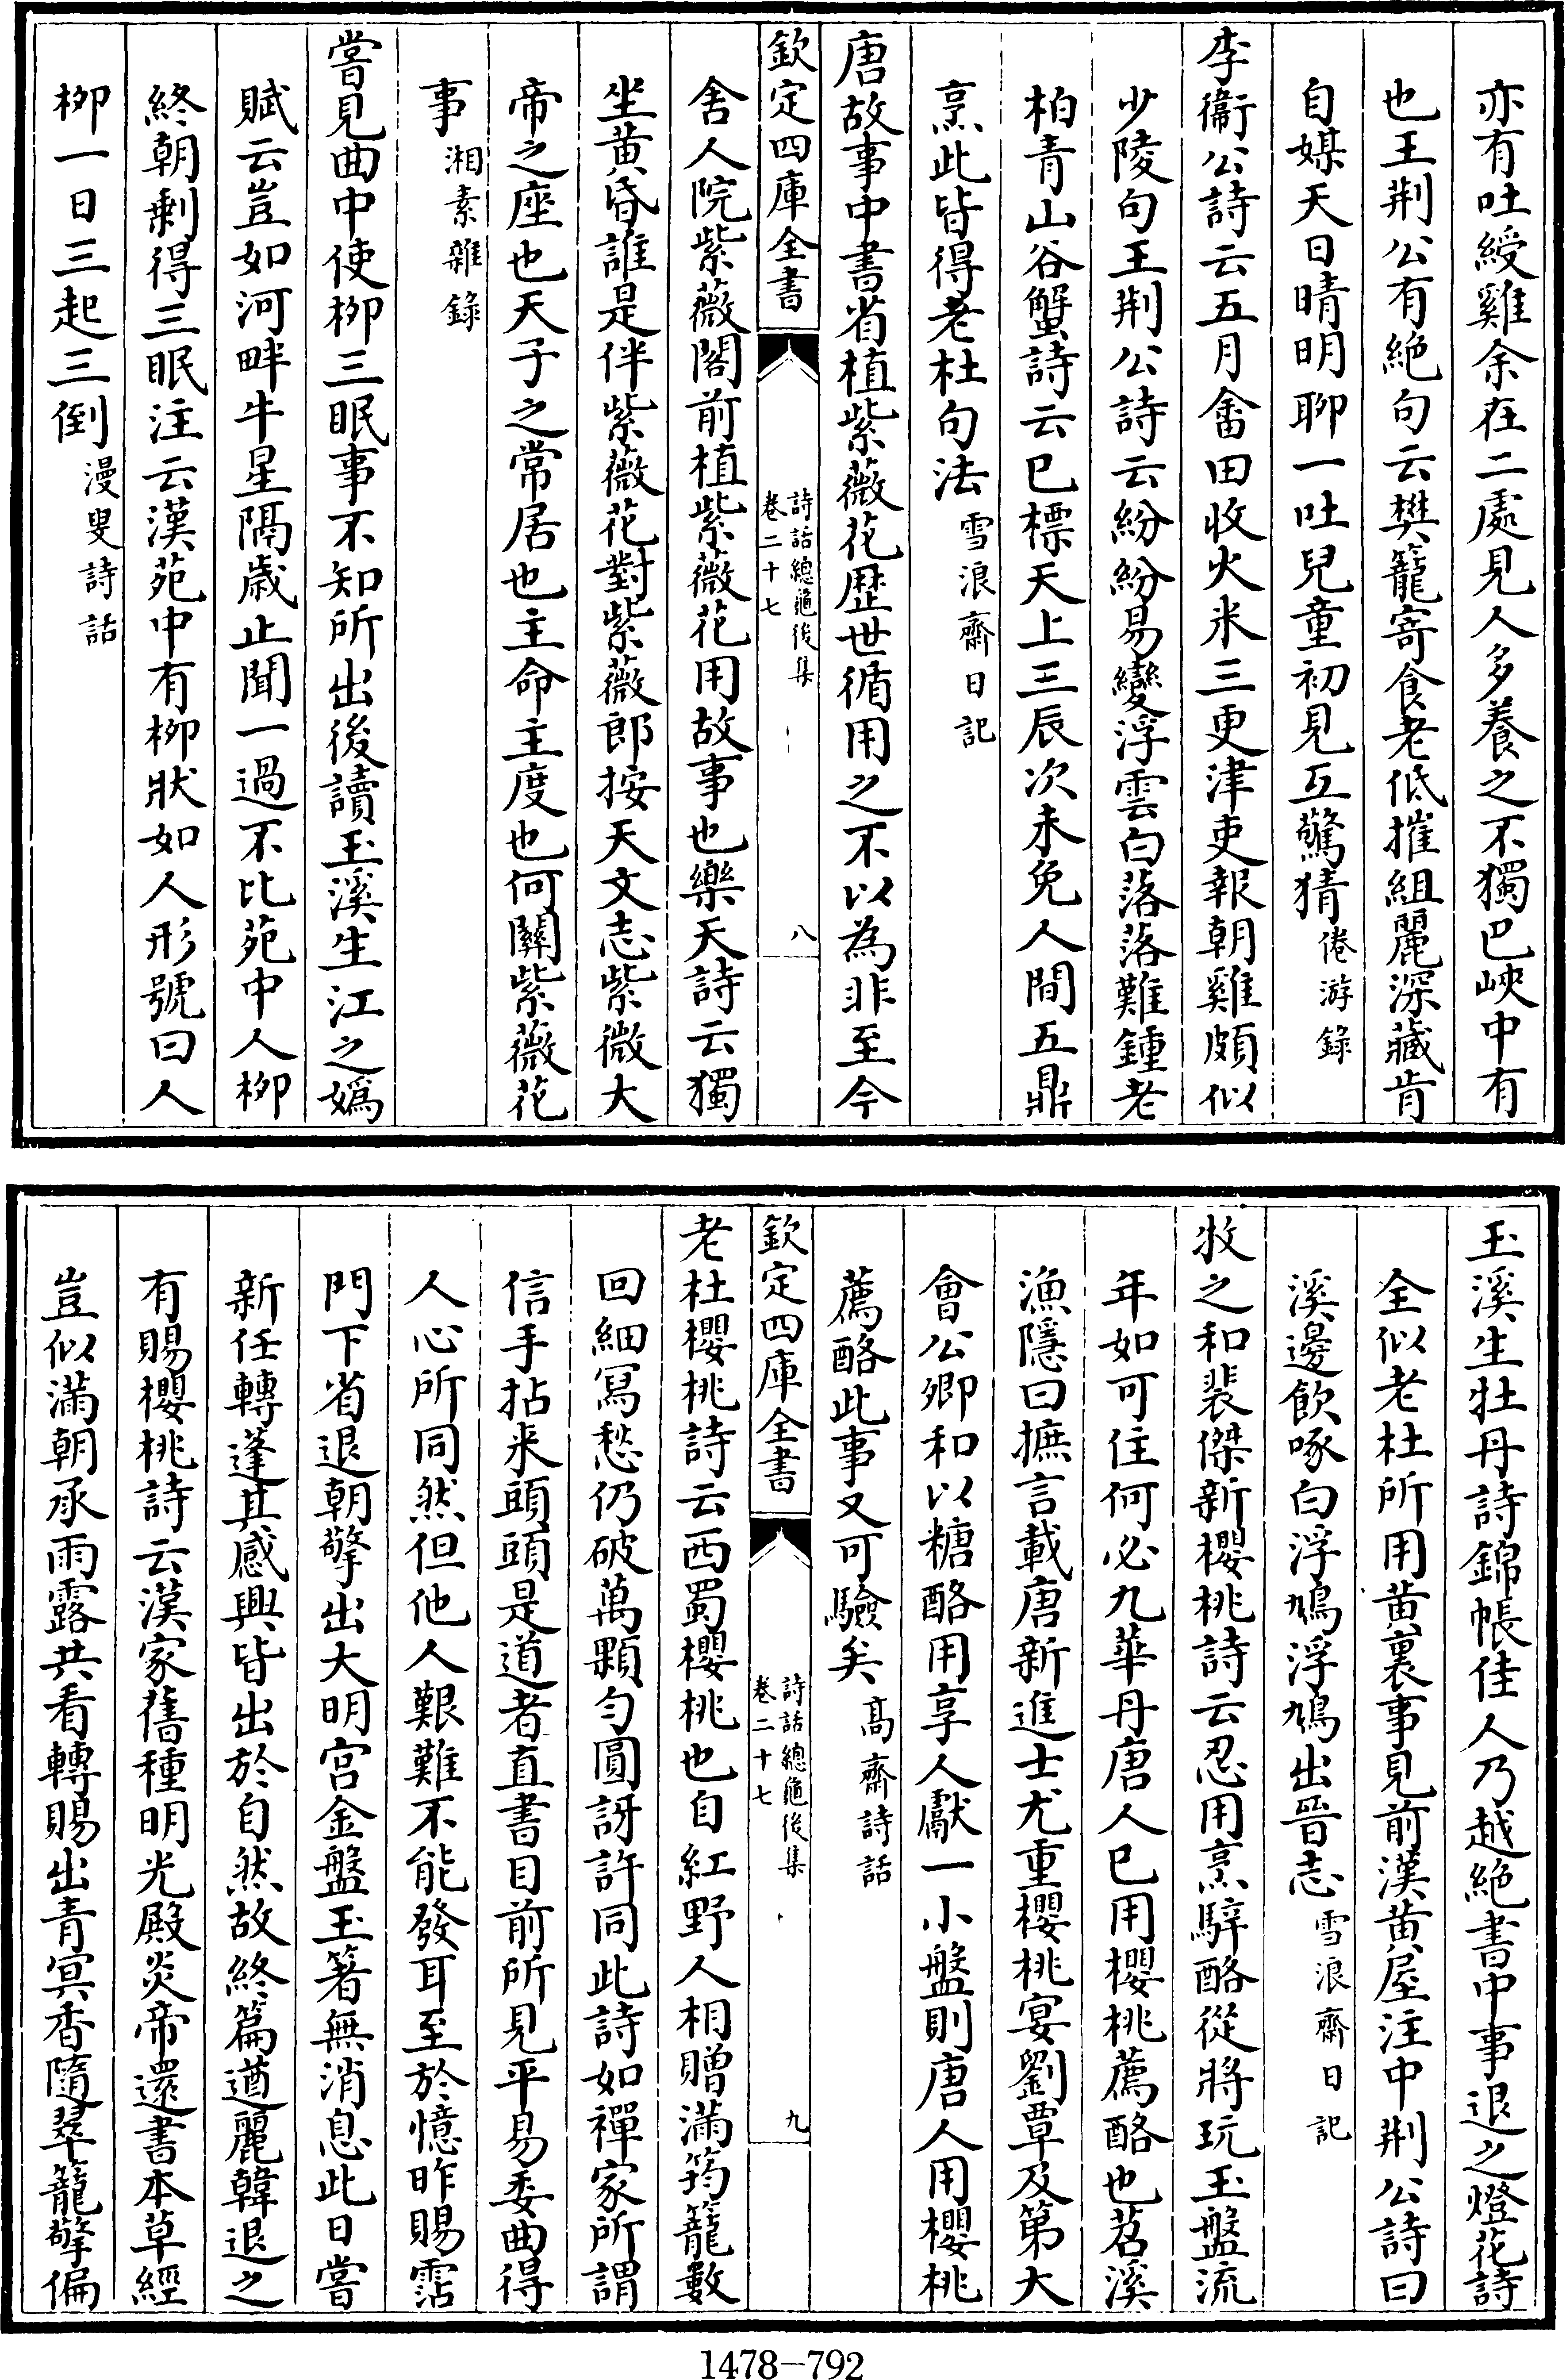 亦有吐綬雞余在二處見人多養之不獨巴峽中有
也王荆公有絶句云樊籠寄食老低摧組麗深藏肯
自媒天日晴明聊一吐兒童初見互驚猜倦游錄
李衞公詩云五月畬田收火米三更津吏報朝雞頗似
少陵句王荆公詩云紛紛易變浮雲白落落難鍾老
柏青山谷蟹詩云已標天上三辰次未免人間五鼎
烹此皆得老杜句法雪浪齋日記
唐故事中書省植紫薇花歴世循用之不以為非至今
欽定四庫全書
詩話總龜後集
卷二十七
八
舍人院紫薇閣前植紫薇花用故事也樂天詩云獨
坐黄昏誰是伴紫薇花對紫薇郎按天文志紫微大
帝之座也天子之常居也主命主度也何關紫薇花
事湘素雜錄
嘗見曲中使栁三眠事不知所出後讀玉溪生江之嫣
賦云豈如河畔牛星隔歲止聞一過不比苑中人栁
終朝剩得三眠注云漢苑中有栁狀如人形號曰人
栁一日三起三倒漫叟詩話
玉溪生牡丹詩錦帳佳人乃越絶書中事退之燈花詩
全似老杜所用黄裏事見前漢黄屋注中荆公詩曰
溪邊飲啄白浮鳩浮鳩出晉志雪浪齋日記
牧之和裴傑新櫻桃詩云忍用烹騂酪從將玩玉盤流
年如可住何必九華丹唐人已用櫻桃薦酪也苕溪
漁隱曰摭言載唐新進士尤重櫻桃宴劉覃及第大
會公卿和以糖酪用享人獻一小盤則唐人用櫻桃
薦酪此事又可驗矣髙齋詩話
欽定四庫全書
詩話總龜後集
卷二十七
九
老杜櫻桃詩云西蜀櫻桃也自紅野人相贈滿筠籠數
回細冩愁仍破萬顆勻圓訝許同此詩如禪家所謂
信手拈来頭頭是道者直書目前所見平易委曲得
人心所同然但他人艱難不能發耳至於憶昨賜霑
門下省退朝擎出大明宫金盤玉箸無消息此日嘗
新任轉蓬其感興皆出於自然故終篇遒麗韓退之
有賜櫻桃詩云漢家舊種明光殿炎帝還書本草經
豈似滿朝承雨露共看轉賜出青冥香隨翠籠擎偏
1478—792